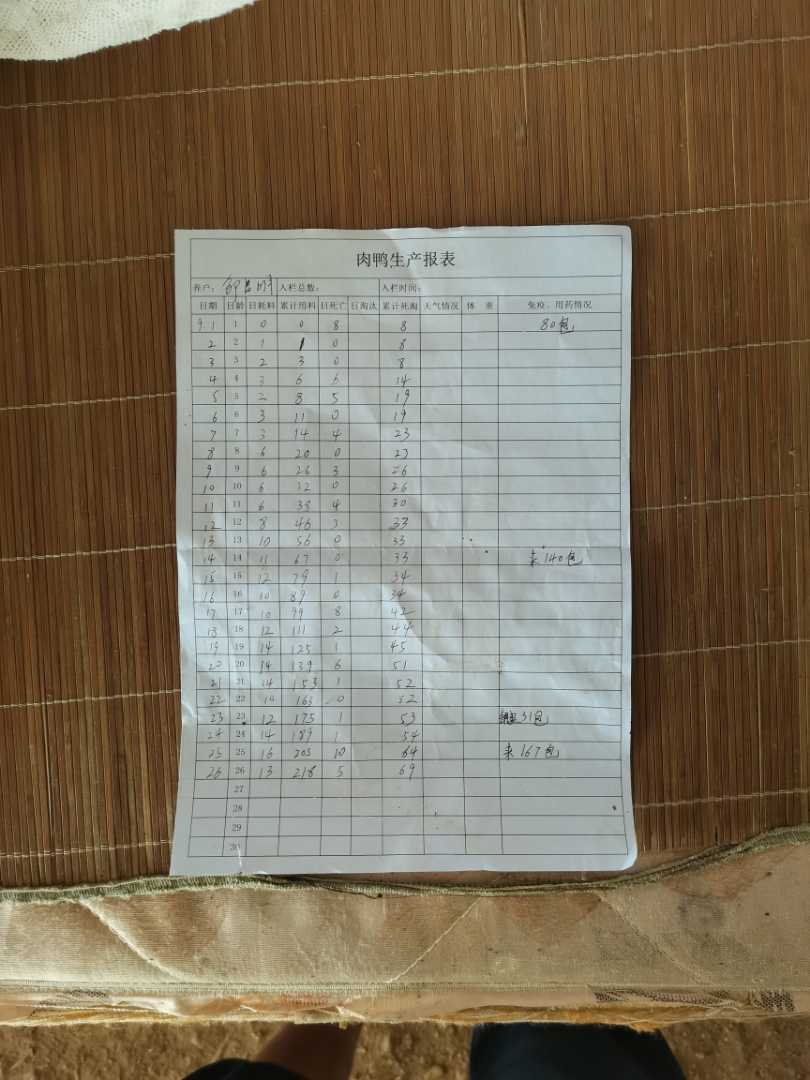 肉鸭生产报表
养户： 入栏总数： 入栏时间：
日期 日龄 日耗料 累计用料 日死亡 日淘汰 累计死淘 天气情况 体 重 免疫、用药情况
9.1 1 0 0 8 8 80包
2 2 1 1 0 8
3 3 2 3 0 8
4 4 3 6 6 14
5 5 2 8 5 19
6 6 3 11 0 19
7 7 3 14 4 23
8 8 6 20 0 23
9 9 6 26 3 26
10 10 6 32 0 26
11 11 6 38 4 30
12 12 8 46 3 33
13 13 10 56 0 33
14 14 11 67 0 33 来140包
15 15 12 79 1 34
16 16 10 89 0 34
17 17 10 99 8 42
18 18 12 111 2 44
19 19 14 125 1 45
20 20 14 139 6 51
21 21 14 153 1 52
22 22 10 163 0 52
23 23 12 175 1 53 31包
24 24 14 189 1 54
25 25 16 205 10 64 来167包
26 26 13 218 5 69
27
28
29
30